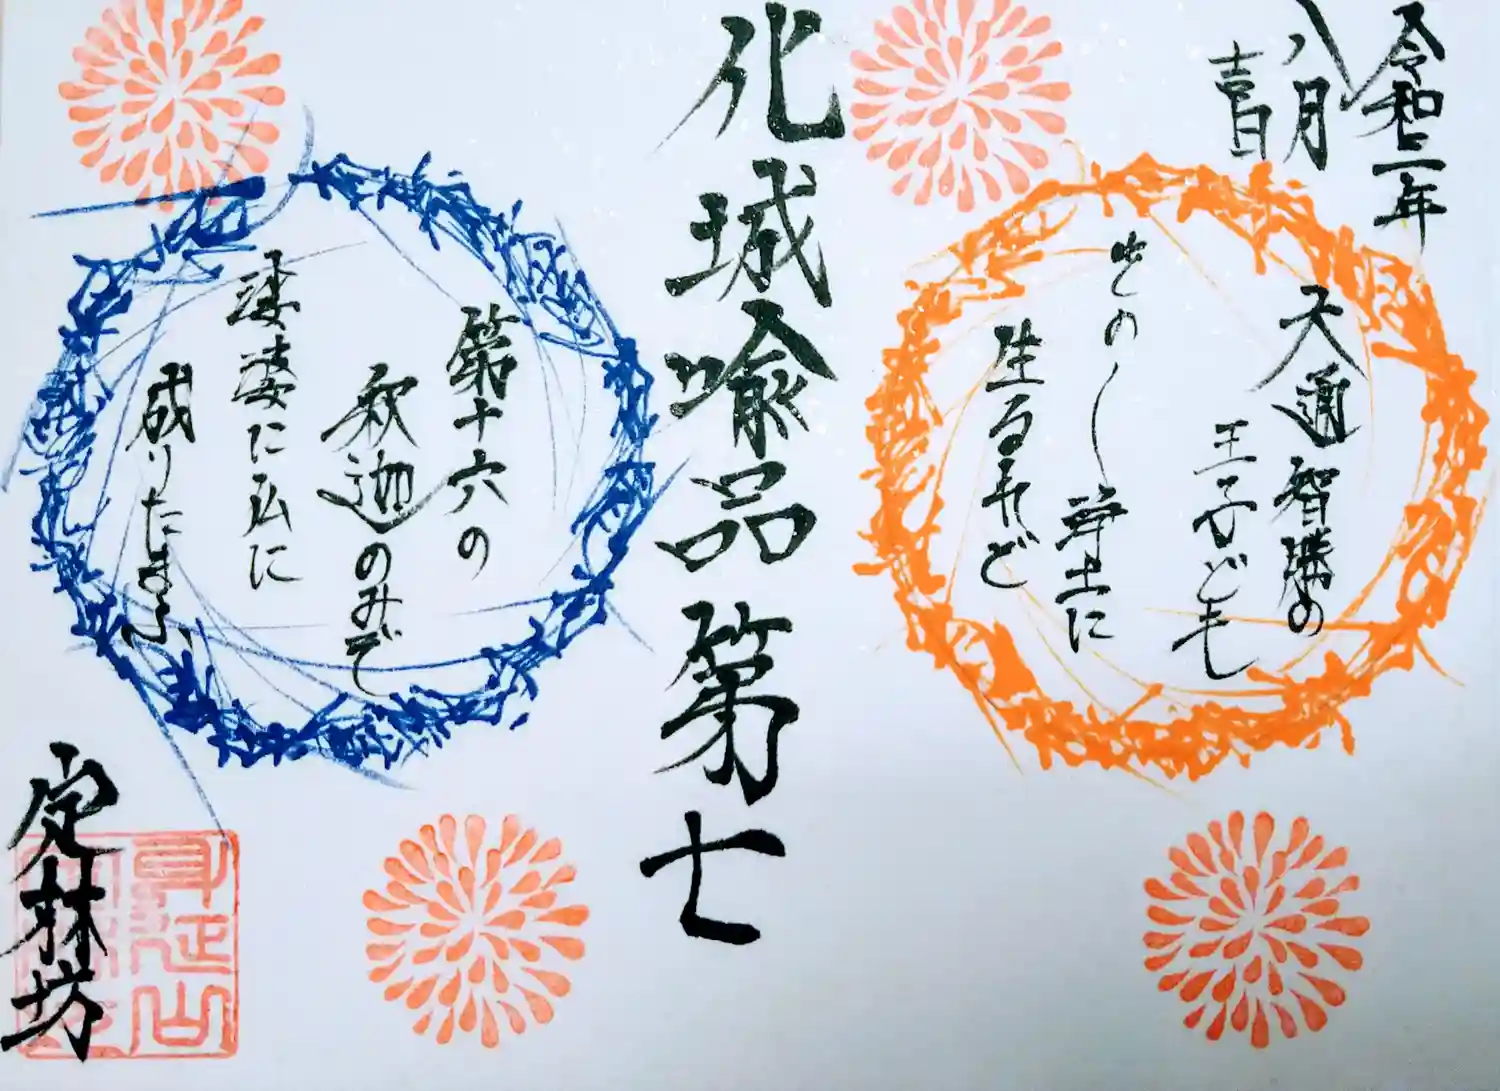 令和二年
八月
吉日
大通智勝の
王子ども
おの〱浄土に
生るれど
化城喩品第七
第十六の
釈迦のみぞ
娑婆に仏に
成りたまふ
定林坊
身延山